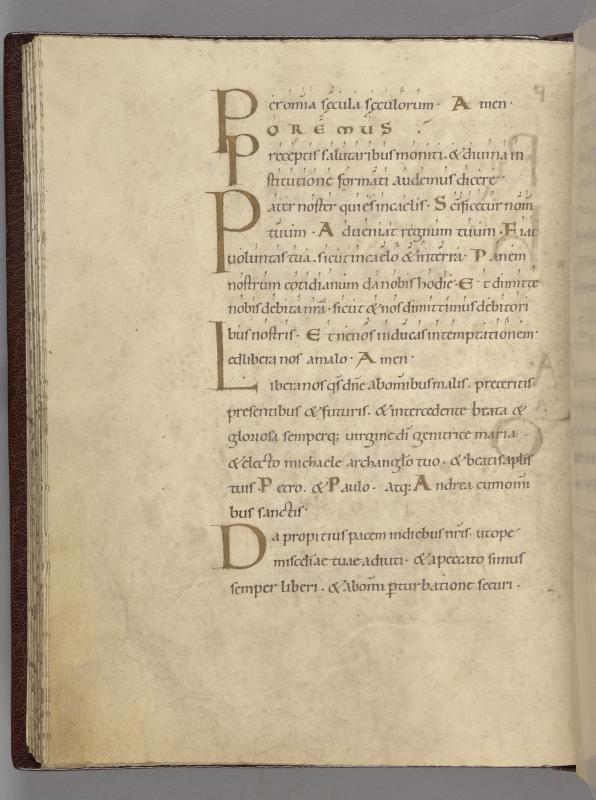 Per omia secula seculorum. Amen.
OREMUS
Preceptis salutaribus moniti. & divina in
stitutione formati audemus dicere
Pater noster qui es in caelis. Scificetur nom
tuum. Adveniat regnum tuum. Fiat
voluntas tua. sicut in caelo & in terra. Panem
nostrum cotidianum da nobis hodie. Et dimitte
nobis debita nra. sicut & nos dimittimus debitori
bus nostris. Et ne nos inducas in temptationem.
ed libera nos a malo. Amen.
Libera nos qs dne ab omibus malis. preteritis
presentibus & futuris. & intercedente beata &
gloriosa semperq; virgine di genitrice maria.
& electo michaele archanglo tuo. & beatis aplis
tuis Petro. & Paulo. atq; Andrea cum omi
bus sanctis.
Da propitius pacem in diebus nris. ut ope
miscdiae tuae adiuti. & a peccato simus
semper liberi. & ab omi pturbatione securi.